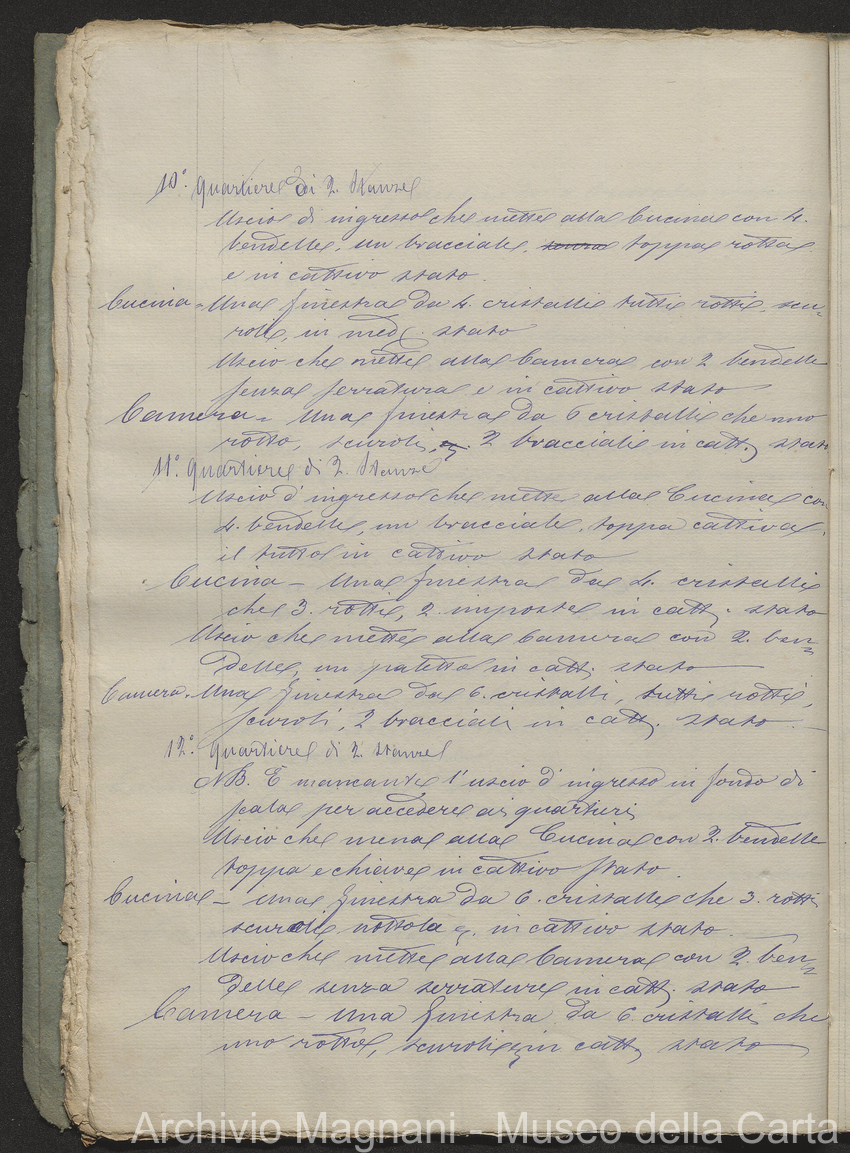 10º. Quartiere di 2. Stanze
Uscio di ingresso che mette alla Cucina con 4.
bendelle, un bracciale, senza toppa rotta
e in cattivo stato.
Cucina = Una finestra da 4. cristalli tutti rotti, scu=
roli, in med. stato
Uscio che mette alla Camera con 2 bendelle
senza serratura e in cattivo stato
Camera = Una finestra da 6 cristalli che uno
rotto, scuroli, 2 bracciali in catt. stato
11º. Quartiere di 2. Stanze
Uscio d'ingresso che mette alla Cucina con
4. bendelle, un bracciale, toppa cattiva,
il tutto in cattivo stato
Cucina – Una finestra da 4. cristalli
che 3. rotti, 2. imposte in catt. stato
Uscio che mette alla Camera con 2. ben=
delle, un paletto in catt. stato
Camera. Una finestra da 6. cristalli, tutti rotti,
scuroli, 2 bracciali in catt. stato.
12º. Quartiere di 2. stanze
NB. È mancante l'uscio d'ingresso in fondo di
scala per accedere ai quartieri
Uscio che mena alla Cucina con 2. bendelle
toppa e chiave in cattivo stato.
Cucina – una finestra da 6. cristalli che 3. rotti
scuroli nottola e in cattivo stato.
Uscio che mette alla Camera con 2. ben=
delle senza serrature in catt. stato
Camera – Una finestra da 6 cristalli che
uno rotto, scuroli in catt. stato
Archivio Magnani - Museo della Carta